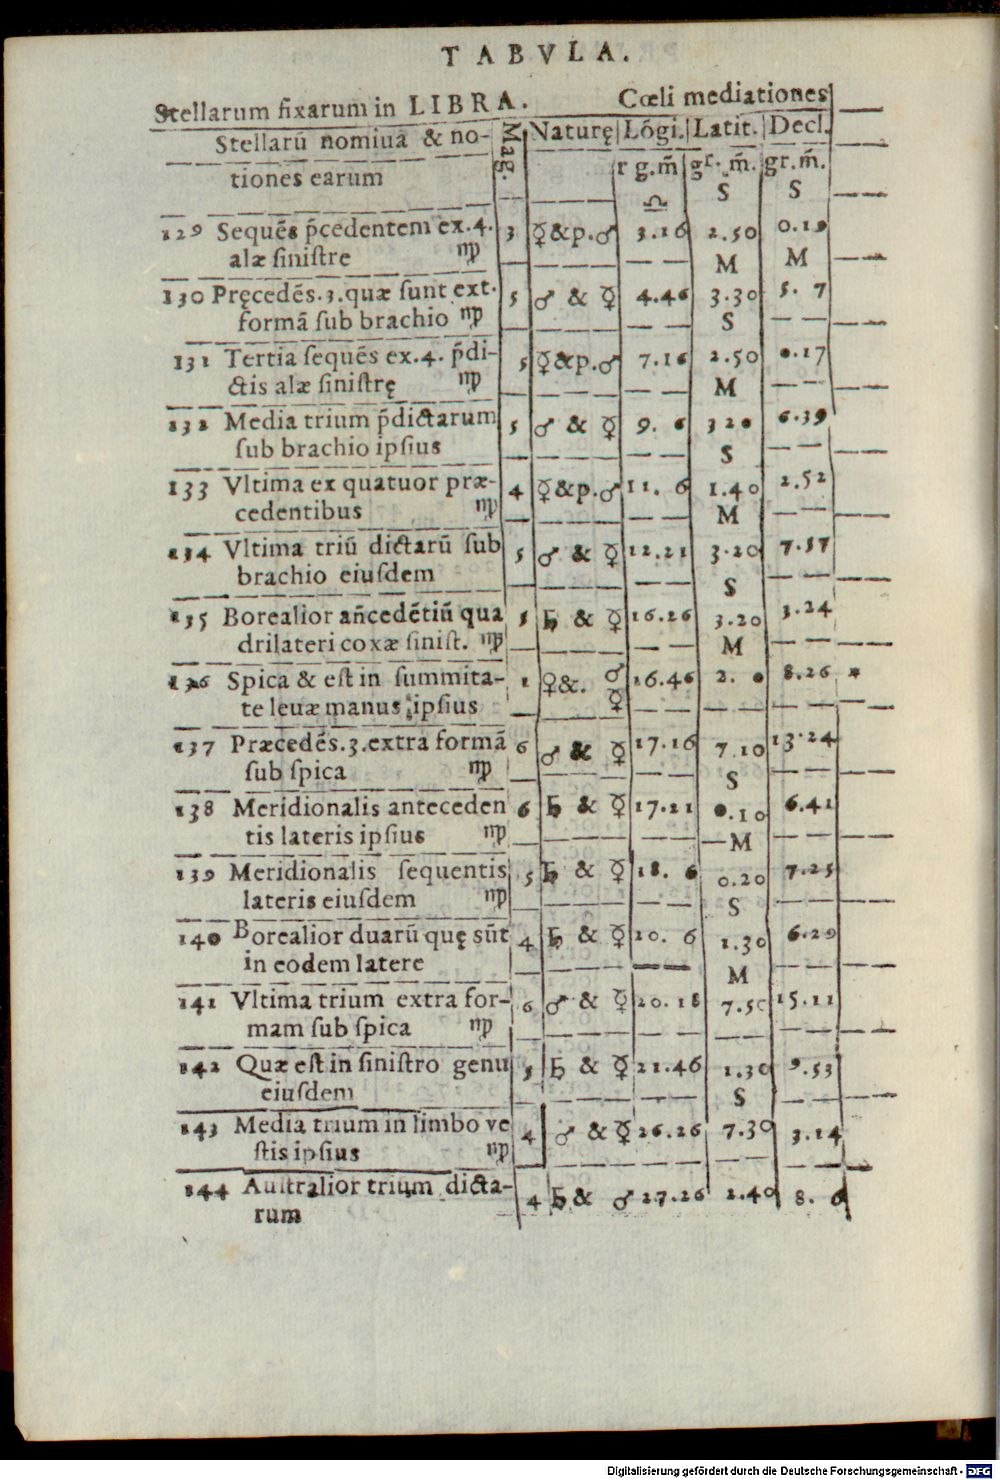 TABVLA.
Stellarum fixarum in LIBRA. Cœli mediationes
Stellarũ nomiua & no- Mag. Naturę Lõgi. Latit. Decl.
tiones earum r g.m̃ gr. m̃. gr.m̃.
♎ S S
129 Sequẽs p̃cedentem ex.4. 3 ☿&p.♂ 3.16 2.50 0.19
alæ siniſtre ♍ M M
130 Pręcedẽs.3.quæ ſunt ext. 5 ♂ & ☿ 4.46 3.30 5. 7
formã ſub brachio ♍ S
131 Tertia ſequẽs ex.4. p̃di- 5 ☿&p.♂ 7.16 2.50 0.17
ctis alæ ſiniſtrę ♍ M
132 Media trium p̃dictarum 5 ♂ & ☿ 9. 6 3 20 6.39
ſub brachio ipſius S
133 Vltima ex quatuor præ- 4 ☿&p.♂ 11. 6 1.40 2.52
cedentibus ♍ M
134 Vltima triũ dictarũ ſub 5 ♂ & ☿ 12.21 3.20 7.57
brachio eiuſdem S
135 Borealior añcedẽtiũ qua 5 ♄ & ☿ 16.26 3.20 3.24
drilateri coxæ ſiniſt. ♍ M
136 Spica & eſt in ſummita- 1 ♀&. ♂ 16.46 2. 0 8.26 *
te leuæ manus ipſius ☿
137 Præcedẽs.3.extra formã 6 ♂ & ☿ 17.16 7.10 13.24
ſub ſpica ♍ S
138 Meridionalis anteceden 6 ♄ & ☿ 17.21 0.10 6.41
tis lateris ipſius ♍ M
139 Meridionalis ſequentis 5 ♄ & ☿ 18. 6 0.20 7.25
lateris eiuſdem ♍ S
140 Borealior duarũ quę sũt 4 ♄ & ☿ 20. 6 1.30 6.29
in eodem latere M
141 Vltima trium extra for- 6 ♂ & ☿ 20.18 7.50 15.11
mam ſub ſpica ♍
142 Quæ eſt in ſiniſtro genu 5 ♄ & ☿ 21.46 1.30 9.53
eiuſdem S
143 Media trium in limbo ve 4 ♂ & ☿ 26.26 7.30 3.14
ſtis ipſius ♍
144 Auſtralior trium dicta- 4 ♄& ♂ 27.26 2.40 8. 6
rum
Digitalisierung gefördert durch die Deutsche Forschungsgemeinschaft - DFG